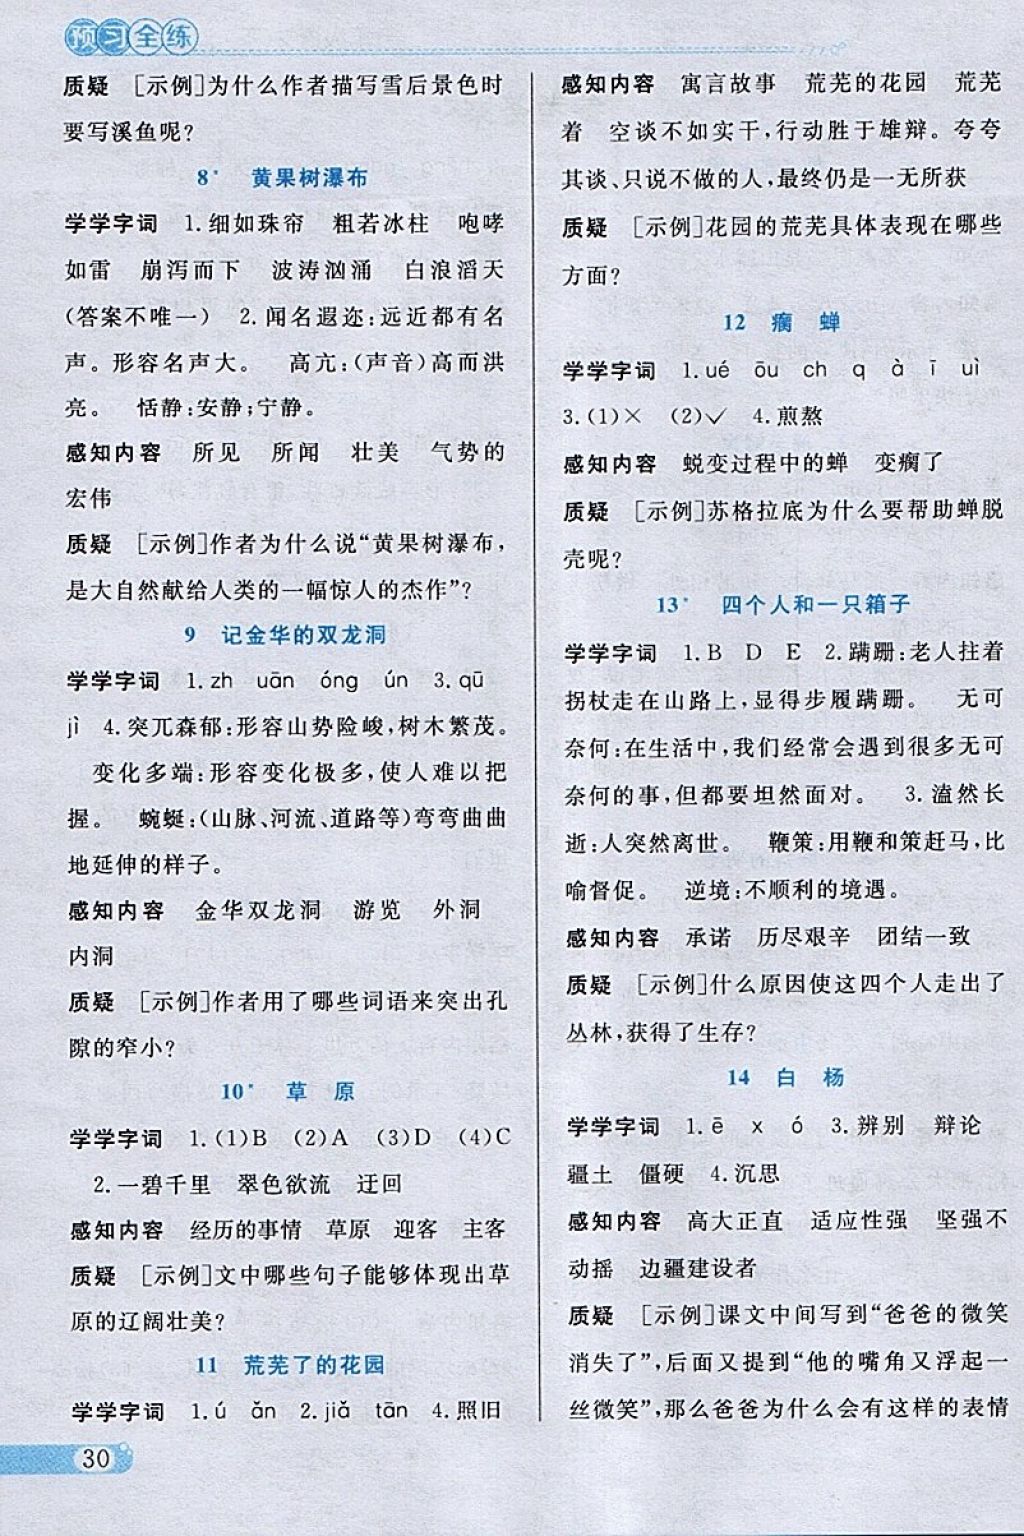 预习全练
质疑 [示例]为什么作者描写雪后景色时
要写溪鱼呢?
8* 黄果树瀑布
学学字词 1.细如珠帘 粗若冰柱 咆哮
如雷 崩泻而下 波涛汹涌 白浪滔天
(答案不唯一) 2.闻名遐迩:远近都有名
声。形容名声大。 高亢:(声音)高而洪
亮。 恬静:安静;宁静。
感知内容 所见 所闻 壮美 气势的
宏伟
质疑 [示例]作者为什么说“黄果树瀑布,
是大自然献给人类的一幅惊人的杰作”?
9 记金华的双龙洞
学学字词 1.zh uān óng ún 3.qū
jì 4.突兀森郁:形容山势险峻,树木繁茂。
变化多端:形容变化极多,使人难以把
握。 蜿蜒:(山脉、河流、道路等)弯弯曲曲
地延伸的样子。
感知内容 金华双龙洞 游览 外洞
内洞
质疑 [示例]作者用了哪些词语来突出孔
隙的窄小?
10* 草 原
学学字词 1.(1)B (2)A (3)D (4)C
2.一碧千里 翠色欲流 迂回
感知内容 经历的事情 草原 迎客 主客
质疑 [示例]文中哪些句子能够体现出草
原的辽阔壮美?
11 荒芜了的花园
学学字词 1.ú ǎn 2.jiǎ tān 4.照旧
30
感知内容 寓言故事 荒芜的花园 荒芜
着 空谈不如实干,行动胜于雄辩。夸夸
其谈、只说不做的人,最终仍是一无所获
质疑 [示例]花园的荒芜具体表现在哪些
方面?
12 瘸 蝉
学学字词 1.ué ōu ch q à ī uì
3.(1)× (2)✓ 4.煎熬
感知内容 蜕变过程中的蝉 变瘸了
质疑 [示例]苏格拉底为什么要帮助蝉脱
壳呢?
13* 四个人和一只箱子
学学字词 1.B D E 2.蹒跚:老人拄着
拐杖走在山路上,显得步履蹒跚。 无可
奈何:在生活中,我们经常会遇到很多无可
奈何的事,但都要坦然面对。 3.溘然长
逝:人突然离世。 鞭策:用鞭和策赶马,比
喻督促。 逆境:不顺利的境遇。
感知内容 承诺 历尽艰辛 团结一致
质疑 [示例]什么原因使这四个人走出了
丛林,获得了生存?
14 白 杨
学学字词 1.ē x ó 3.辨别 辩论
疆土 僵硬 4.沉思
感知内容 高大正直 适应性强 坚强不
动摇 边疆建设者
质疑 [示例]课文中间写到“爸爸的微笑
消失了”,后面又提到“他的嘴角又浮起一
丝微笑”,那么爸爸为什么会有这样的表情